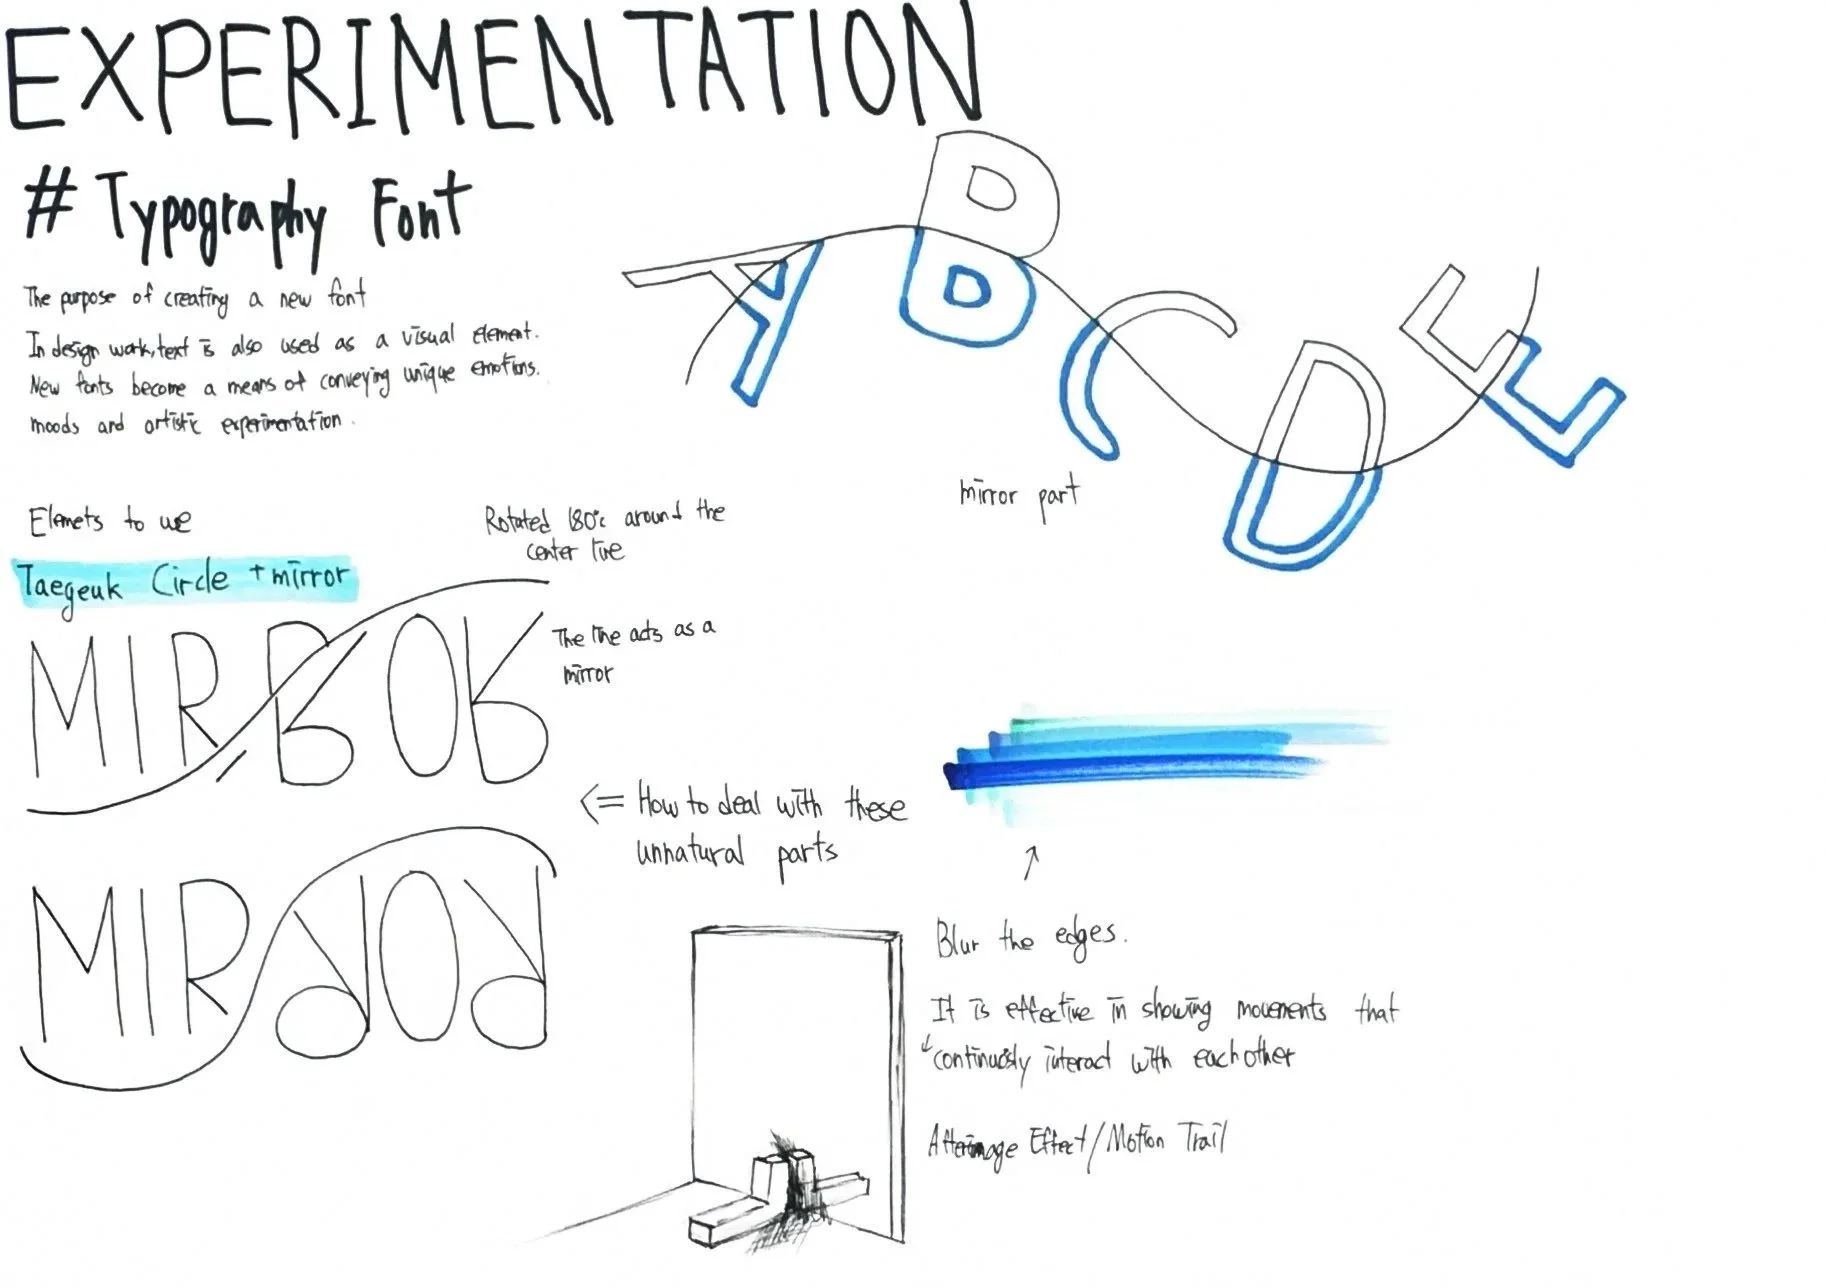 EXPERIMENTATION
# Typography Font
The purpose of creating a new font
In design work, text is also used as a visual element.
New fonts become a means of conveying unique emotions.
moods and artistic experimentation.
A B C D E
mirror part
Elemets to use
Rotated 180°c around the
center line
Taegeuk Circle + mirror
MIRROR
The line acts as a
mirror
<= How to deal with these
unnatural parts
MIRROR
Blur the edges.
It is effective in showing movements that
continuously interact with each other
Afterimage Effect/Motion Trail